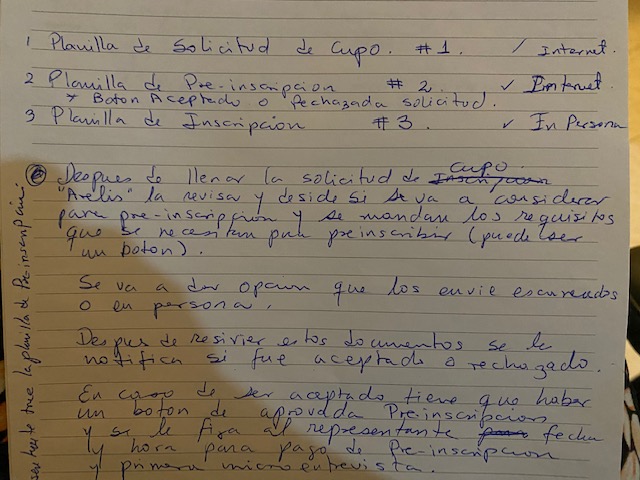 1 Planilla de Solicitud de Cupo. #1. / Internet.
2 Planilla de Pre-inscripcion #2. ✓ Internet.
* Boton Aceptado o Rechazada solicitud.
3 Planilla de Inscripcion #3. ✓ In Persona
Despues de llenar la solicitud de Cupo
"Arelis" la revisa y deside si se va a considerar
para pre-inscripcion y se mandan los requisitos
que se necesitan para preinscribir (puede ser
un boton).
Se va a dar opcion que los envie escaneados
o en persona.
Despues de resivier estos documentos se le
notifica si fue aceptado o rechazado.
En caso de ser aceptado tiene que haber
un boton de aprovada Preinscripcion
y se le fija al representante fecha
y hora para pago de Pre-inscripcion
y primera micro entrevista.
la planilla de Pre-inscripcion